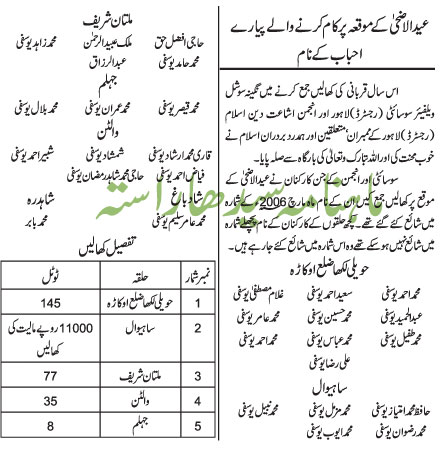 عیدالاضحیٰ کے موقعہ پر کام کرنے والے پیارے
احباب کے نام
اس سال قربانی کی کھالیں جمع کرنے میں نگینہ سوشل
ویلفیئر سوسائٹی (رجسٹرڈ) لاہور اور انجمن اشاعت دین اسلام
(رجسٹرڈ) لاہور کے ممبران، متعلقین اور ہمدرد برادران اسلام نے
خوب محنت کی اور اللہ تبارک وتعالیٰ کی بارگاہ سے صلہ پایا۔
سوسائٹی اور انجمن کے جن کارکنان نے عیدالاضحیٰ کے
موقع پر کھالیں جمع کیں ان کے نام ماہ مارچ 2006 کے شمارہ
میں شائع کئے گئے تھے۔ کچھ حلقوں کے کارکنان کے نام پچھلے شمارہ
میں شائع نہیں ہو سکے تھے وہ اس شمارہ میں شائع کئے جا رہے ہیں۔
حویلی لکھا ضلع اوکاڑہ
محمد احمد یوسفی سعید احمد یوسفی غلام مصطفیٰ یوسفی
عبدالحمید یوسفی محمد حسین یوسفی محمد عامر یوسفی
محمد طفیل یوسفی محمد عباس یوسفی محمد احمد یوسفی
علی رضا یوسفی
ساہیوال
حافظ محمد امتیاز یوسفی محمد مزمل یوسفی محمد نبیل یوسفی
محمد رضوان یوسفی محمد ایوب یوسفی
ملتان شریف
حاجی افضل حق ملک عبیدالرحمٰن محمد زاہد یوسفی
محمد حامد یوسفی عبدالرزاق
جہلم
محمد قیصر یوسفی محمد عمران یوسفی محمد بلال یوسفی
والٹن
قاری محمد ارشاد یوسفی شمشاد یوسفی شبیر احمد یوسفی
فیاض احمد یوسفی حاجی محمد شاہد رمضان یوسفی
شادباغ شاہدرہ
محمد عامر سلیم یوسفی محمد بابر
ماہنامہ سیدھا راستہ
تفصیل کھالیں
نمبر شمار حلقہ ٹوٹل
1 حویلی لکھا ضلع اوکاڑہ 145
2 ساہیوال 11000 روپے مالیت کی
کھالیں
3 ملتان شریف 77
4 والٹن 35
5 جہلم 8